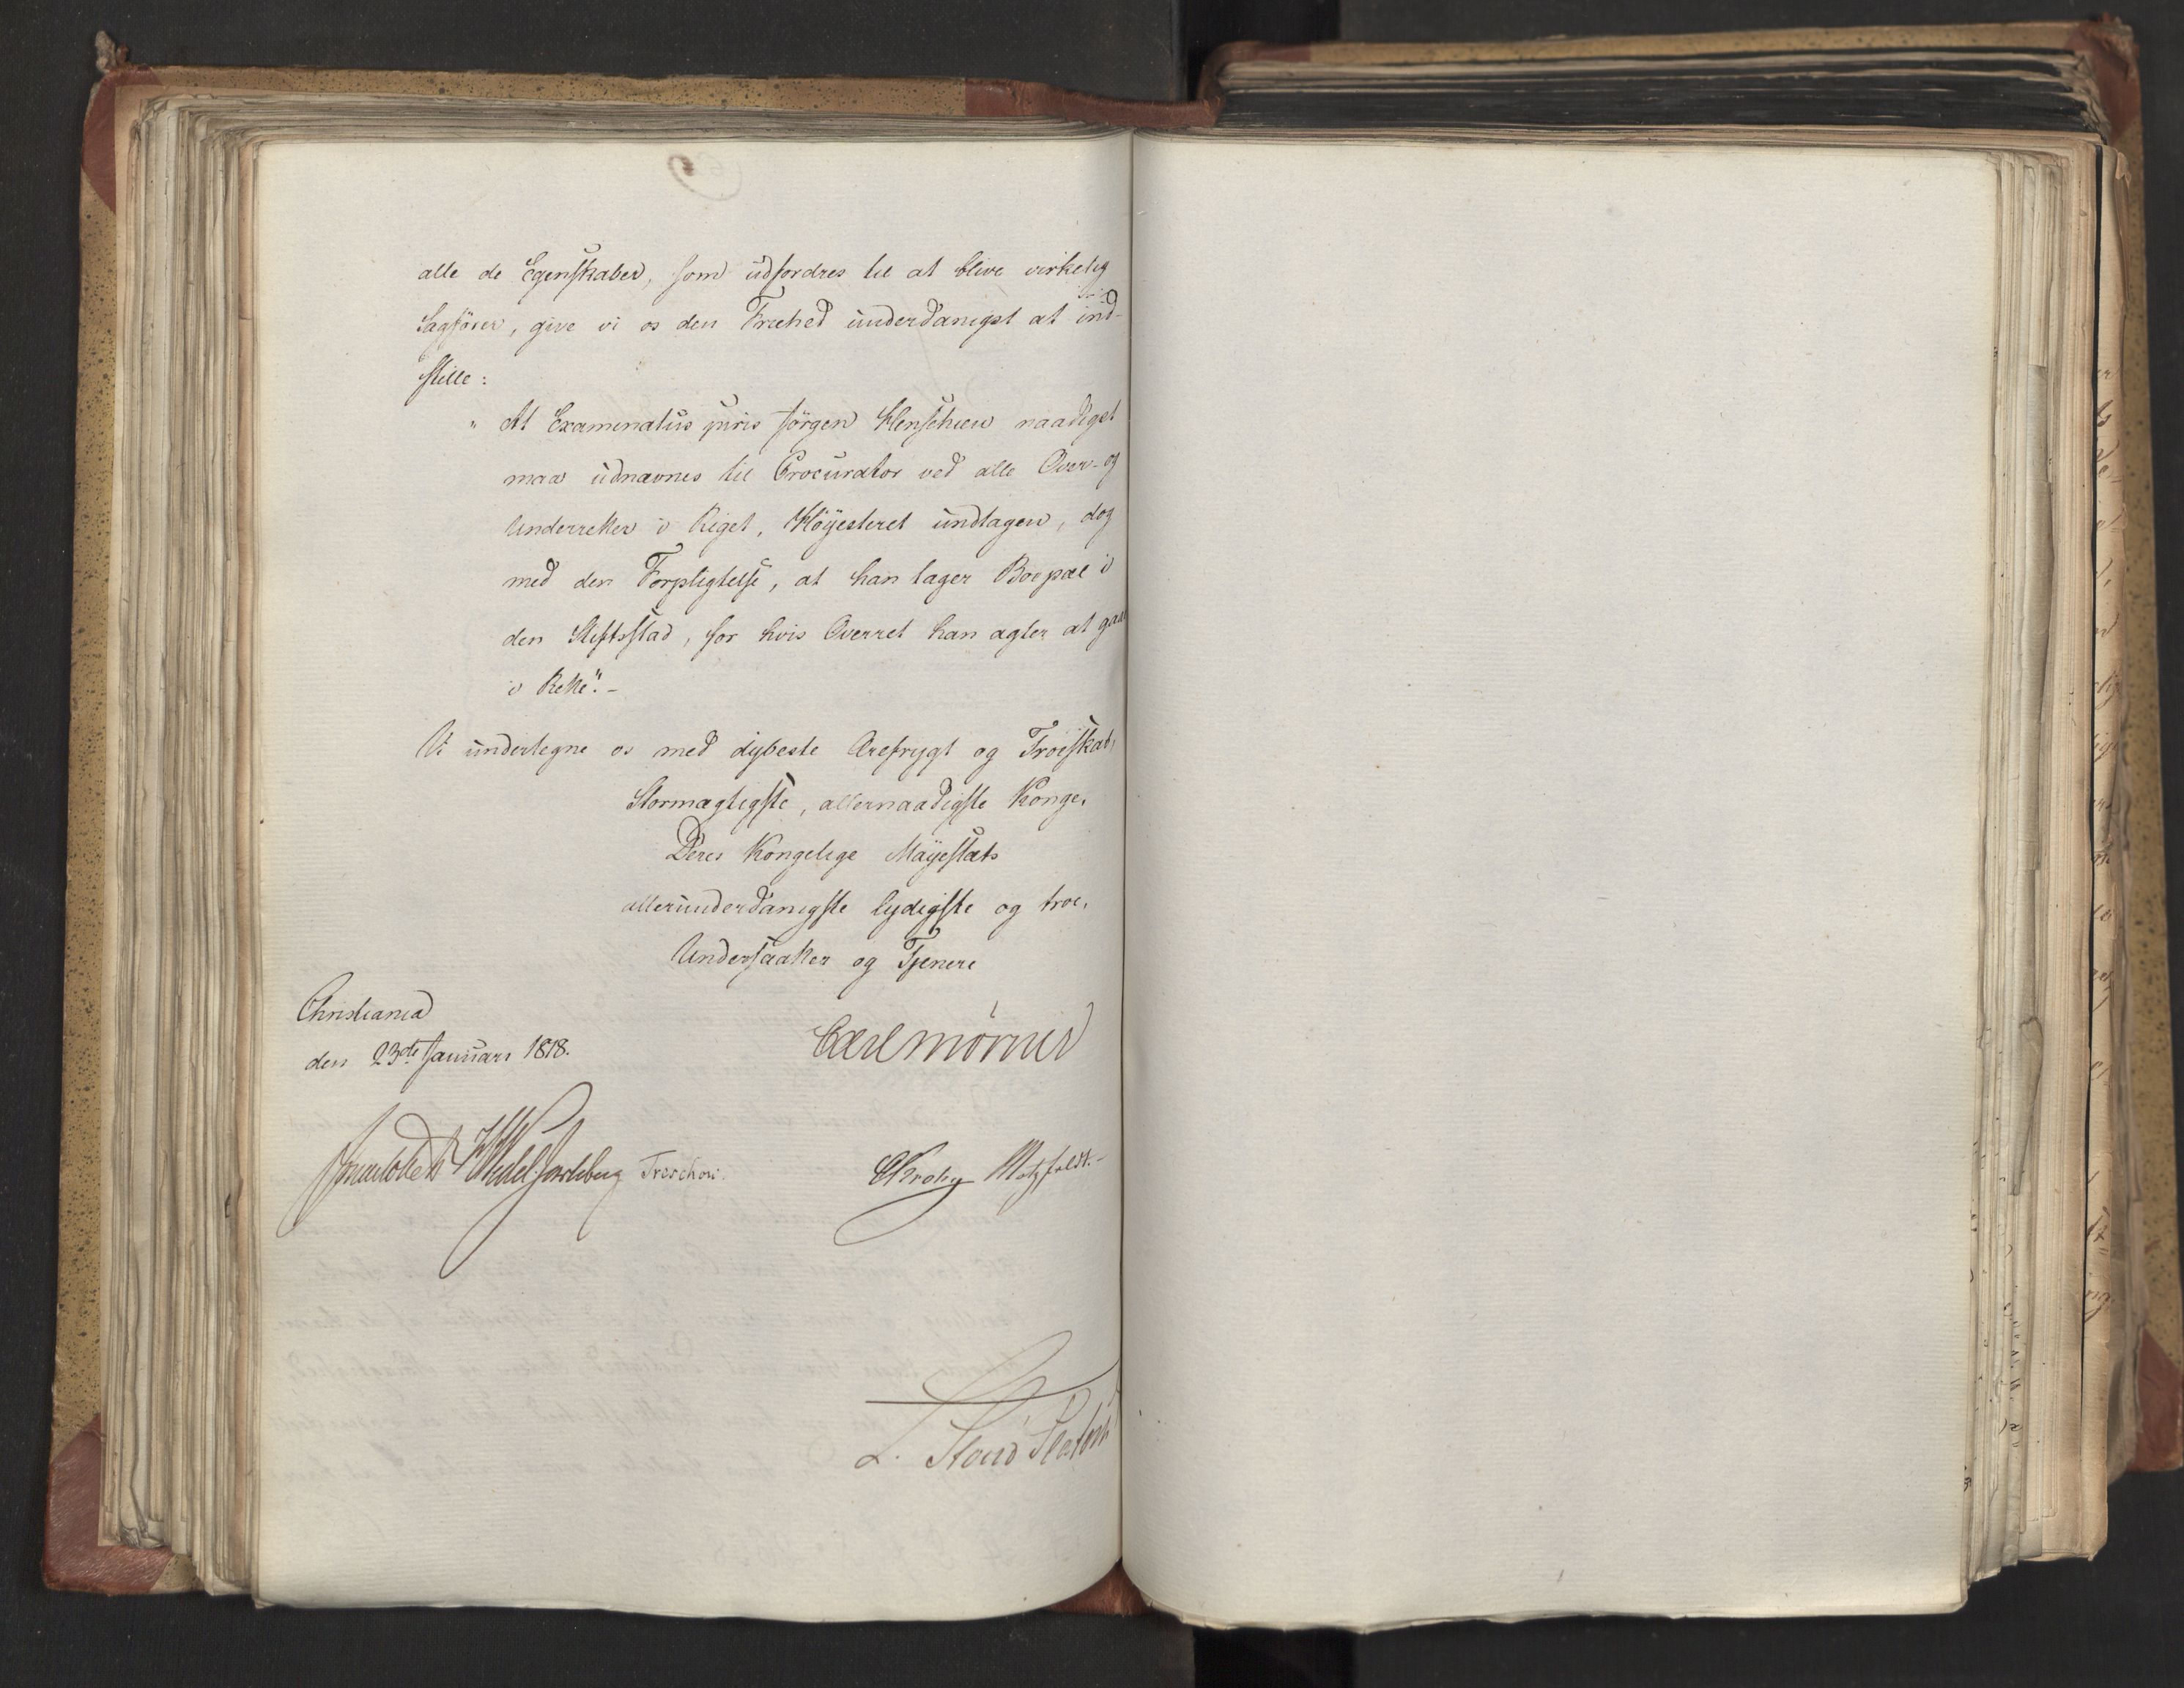 alle de Egenskaber, som udfordres til at blive virkelig
Sagfører, give vi os den Friehed underdanigst at ind-
stille:
"At Examinatus juris Jørgen Henschien naadigst
maa udnævnes til Procurator ved alle Over- og
Underretter i Riget, Høyesteret undtagen, dog
med den Forpligtelse, at han tager Boepæl i
den Stiftsstad, for hvis Overret han agter at gaae
i Rette".-
Vi undertegne os med dybeste Ærefrygt og Troeskab,
Stormægtigste, allernaadigste Konge,
Deres Kongelige Mayestæts
allerunderdanigste lydigste og troe,
Undersaatter og Tjenere
Christiania
den 23de Januari 1818.
Carl Mörner
HWedel Jarlsberg Treschow.
CKrohg Motzfeldt.-
L. Stoud Platou